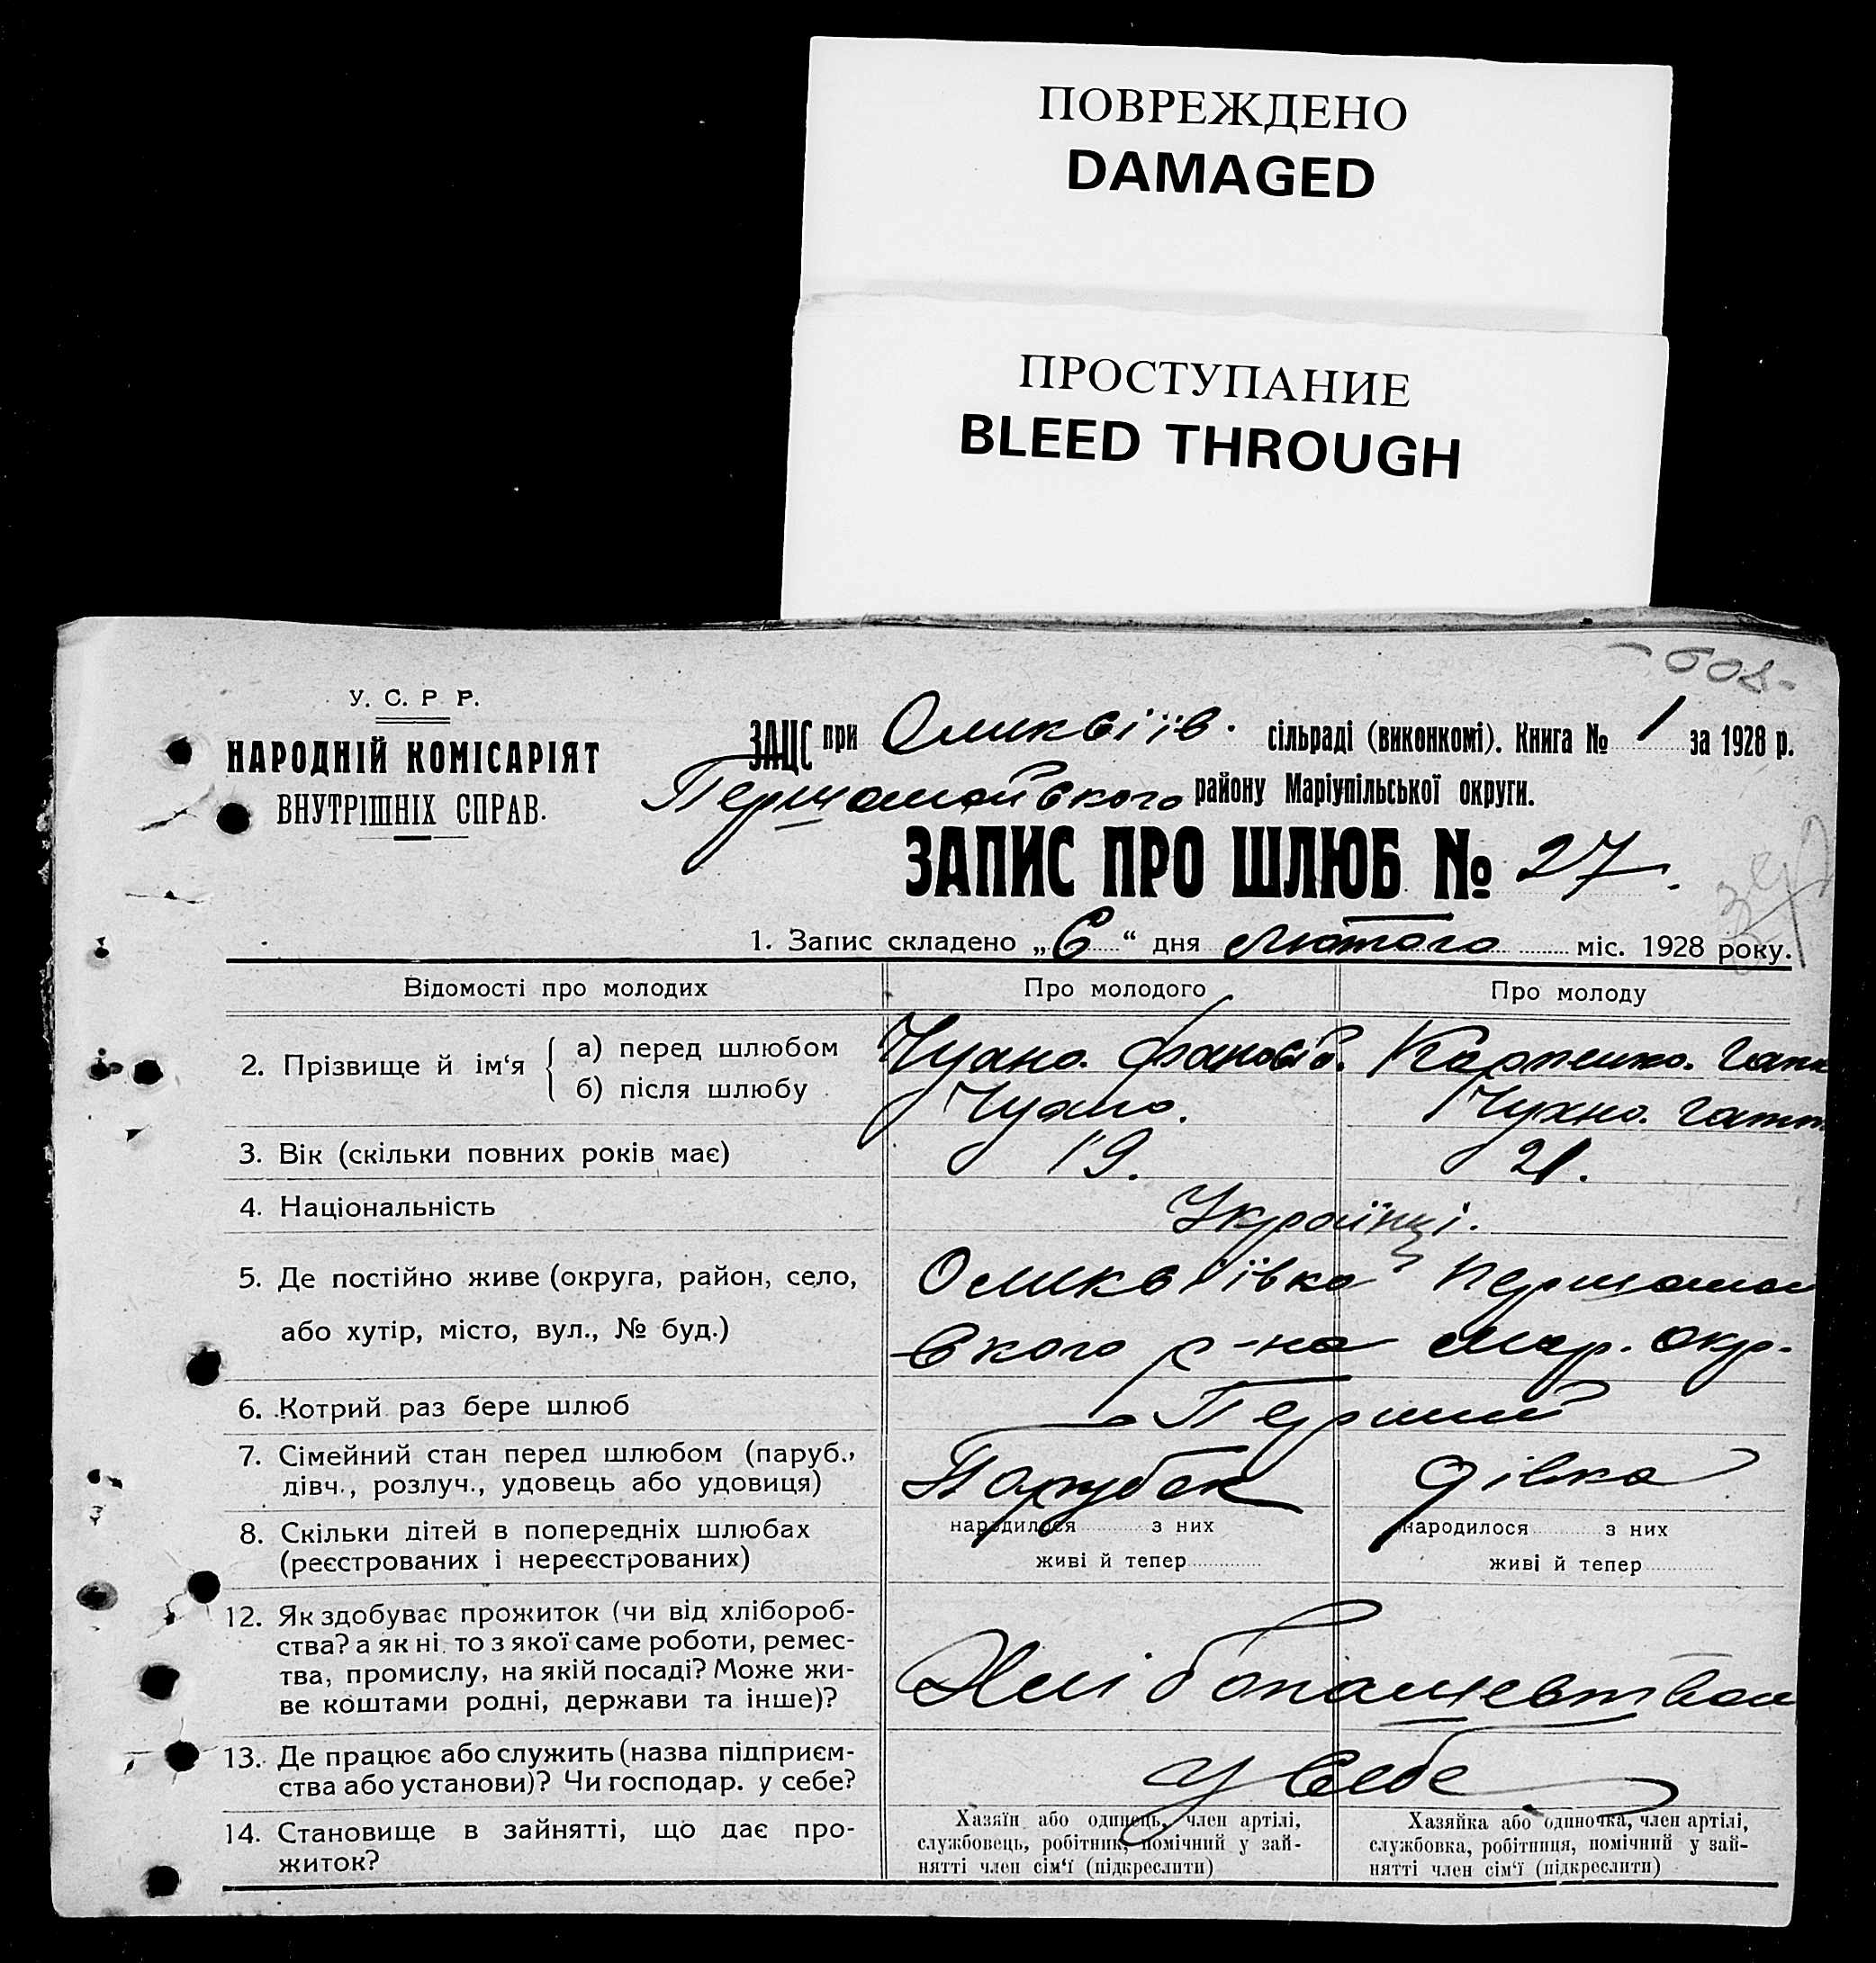 ПОВРЕЖДЕНО
DAMAGED
ПРОСТУПАНИЕ
BLEED THROUGH
У. С. Р. Р.
НАРОДНІЙ КОМІСАРІЯТ
ВНУТРІШНІХ СПРАВ.
ЗАЦС при сільраді (виконкомі). Книга № 1 за 1928 р.
Першомайського району Маріупільської округи.
ЗАПИС ПРО ШЛЮБ № 27.
1. Запис складено „6“ дня Лютого міс. 1928 року.
Відомості про молодих Про молодого Про молоду
2. Прізвище й ім‘я { а) перед шлюбом Чухно. Карпенко.
б) після шлюбу Чухно. Чухно.
3. Вік (скільки повних років має) 19. 21.
4. Національність Українці.
5. Де постійно живе (округа, район, село,
або хутір, місто, вул., № буд.) вкого р-на Мар. Окр.
6. Котрий раз бере шлюб Перший
7. Сімейний стан перед шлюбом (паруб., Парубок дівка
дівч., розлуч., удовець або удовиця)
8. Скільки дітей в попередніх шлюбах народилося з них народилося з них
(реєстрованих і нереєстрованих) живі й тепер живі й тепер
12. Як здобуває прожиток (чи від хлібороб-
ства? а як ні, то з якої саме роботи, ремес-
тва, промислу, на якій посаді? Може жи-
ве коштами родні, держави та інше)?
13. Де працює або служить (назва підприєм- у себе
ства або установи)? Чи господар. у себе?
14. Становище в зайнятті, що дає про-
житок?
Хазяїн або одинець, член артілі,
службовець, робітник, помічний у зай-
нятті член сім‘ї (підкреслити)
Хазяйка або одиночка, член артілі,
службовка, робітниця, помічний у зай-
нятті член сім‘ї (підкреслити)